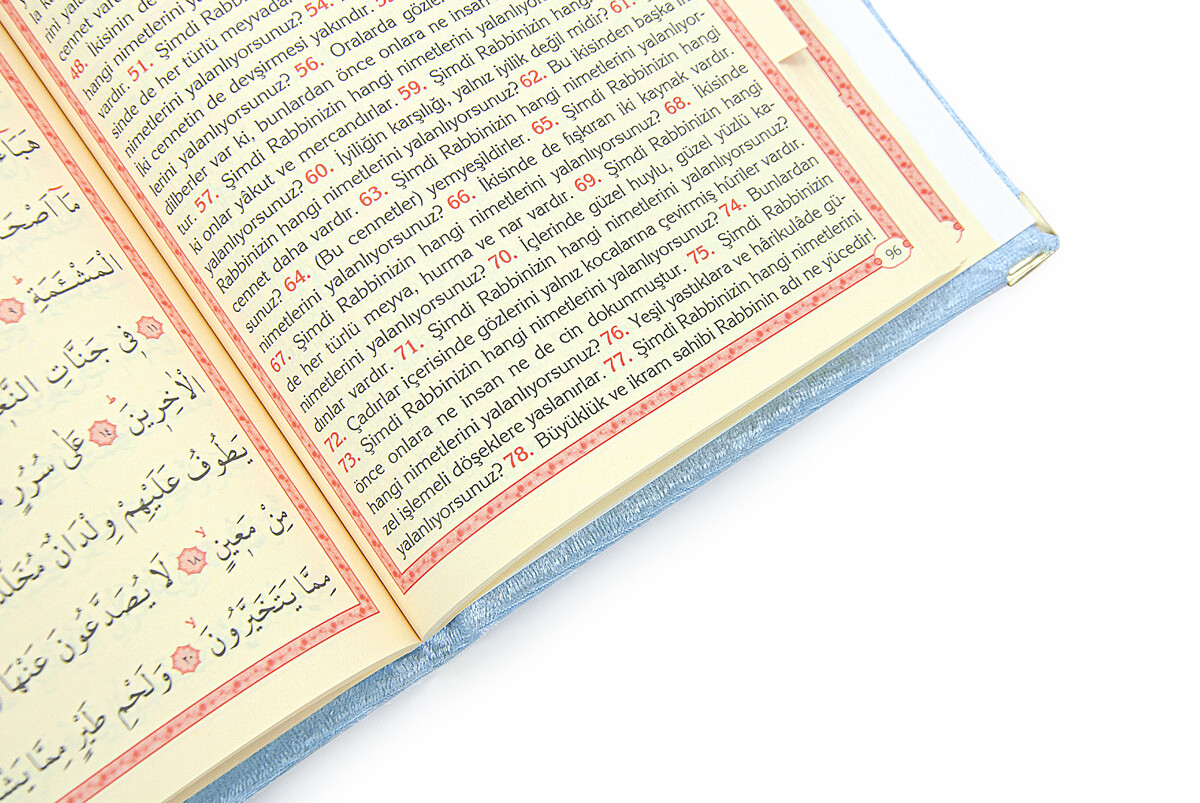 cennet vard
48. İkisinin de
hangi nimetlerini yalanlıyorsunuz? 54.
vardır. 51. Şimdi Rabbinizin hangi
sinde de her türlü meyvadan
nimetlerini yalanlıyorsunuz? 56. Oralarda gözle
iki cennetin de devşirmesi yakındır.
lerini yalanlıyorsunuz? 56. Oralarda gözle
dilberler var ki, bunlardan önce onlara ne insan
tur. 57. Şimdi Rabbinizin hangi nimetlerini yalanlıyorsunuz?
ki onlar yâkut ve mercandırlar. 59. Şimdi Rabbinizin hangi
yalanlıyorsunuz? 60. İyiliğin karşılığı, yalnız iyilik değil midir? 61.
Rabbinizin hangi nimetlerini yalanlıyorsunuz? 62. Bu ikisinden başka i
cennet daha vardır. 63. Şimdi Rabbinizin hangi nimetlerini yalanlıyor-
sunuz? 64. (Bu cennetler) yemyeşildirler. 65. Şimdi Rabbinizin hangi
nimetlerini yalanlıyorsunuz? 66. İkisinde de fışkıran iki kaynak vardır.
67. Şimdi Rabbinizin hangi nimetlerini yalanlıyorsunuz? 68. İkisinde
de her türlü meyva, hurma ve nar vardır. 69. Şimdi Rabbinizin hangi
nimetlerini yalanlıyorsunuz? 70. İçlerinde güzel huylu, güzel yüzlü ka-
dınlar vardır. 71. Şimdi Rabbinizin hangi nimetlerini yalanlıyorsunuz?
72. Çadırlar içerisinde gözlerini yalnız kocalarına çevirmiş hûriler vardır.
73. Şimdi Rabbinizin hangi nimetlerini yalanlıyorsunuz? 74. Bunlardan
önce onlara ne insan ne de cin dokunmuştur. 75. Şimdi Rabbinizin
hangi nimetlerini yalanlıyorsunuz? 76. Yeşil yastıklara ve hârikulâde gü-
zel işlemeli döşeklere yaslanırlar. 77. Şimdi Rabbinizin hangi nimetlerini
yalanlıyorsunuz? 78. Büyüklük ve ikram sahibi Rabbinin adı ne yücedir!
96
مَٓا اَصْحَا
الْمَشْـَٔمَةِ ٩
١١ فٖى جَنَّاتِ النَّع
الْاٰخِرٖينَ ١٤ عَلٰى سُرُرٍ
يَطُوفُ عَلَيْهِمْ وِلْدَانٌ مُخَلَّد
مِنْ مَعٖينٍ ١٨ لَا يُصَدَّعُونَ عَنْهَا
مِمَّا يَتَخَيَّرُونَ ٢٠ وَلَحْمِ طَيْرٍ مِمَّا يَشْ